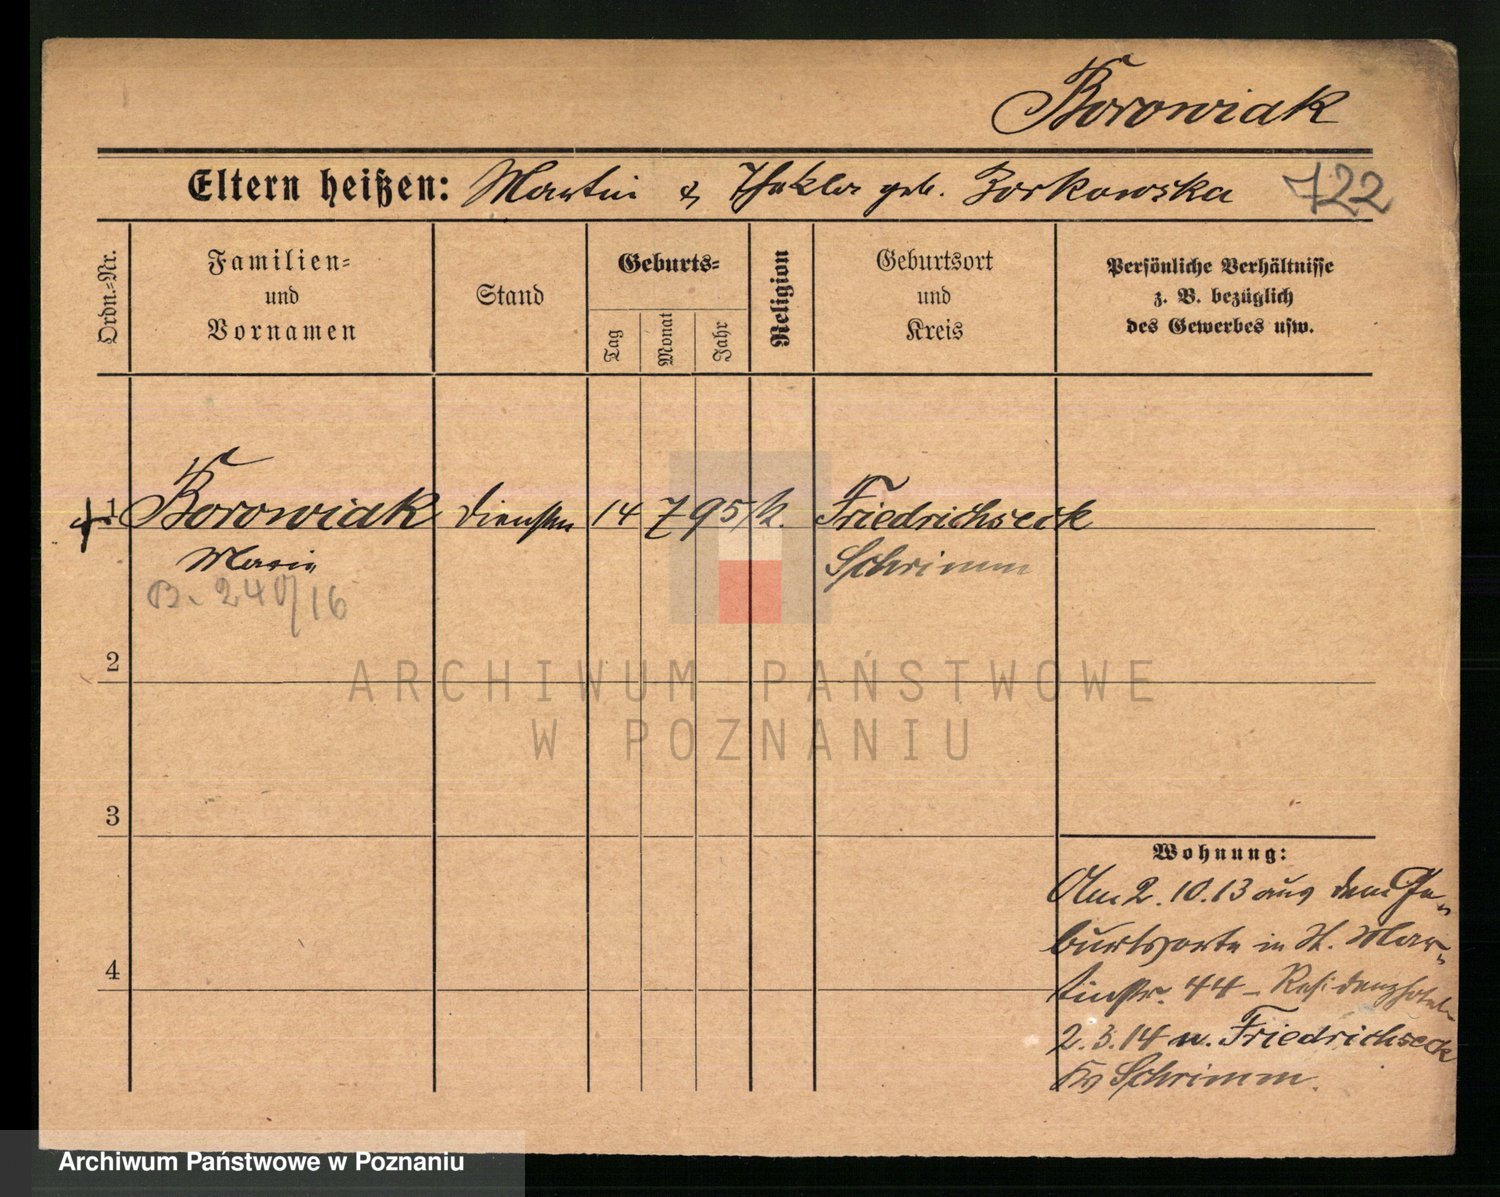 Borowiak
Eltern heißen: Martin & Thekla geb. Borkowska 722
Ordn.-Nr.
Familien-
und
Vornamen
Stand
Geburts-
Tag
Monat
Jahr
Religion
Geburtsort
und
Kreis
Persönliche Verhältnisse
z. B. bezüglich
des Gewerbes usw.
1 Borowiak 14 7 95 k. Friedrichseck
Marie Schrimm
B. 240/16
2
ARCHIWUM PAŃSTWOWE
W POZNANIU
3
Wohnung:
Am 2.10.13 aus dem Ge-
burtsorte in St. Mar-
4
tinstr. 44 – Residenzhotel
2.3.14 n. Friedrichseck
Schrimm.
Archiwum Państwowe w Poznaniu